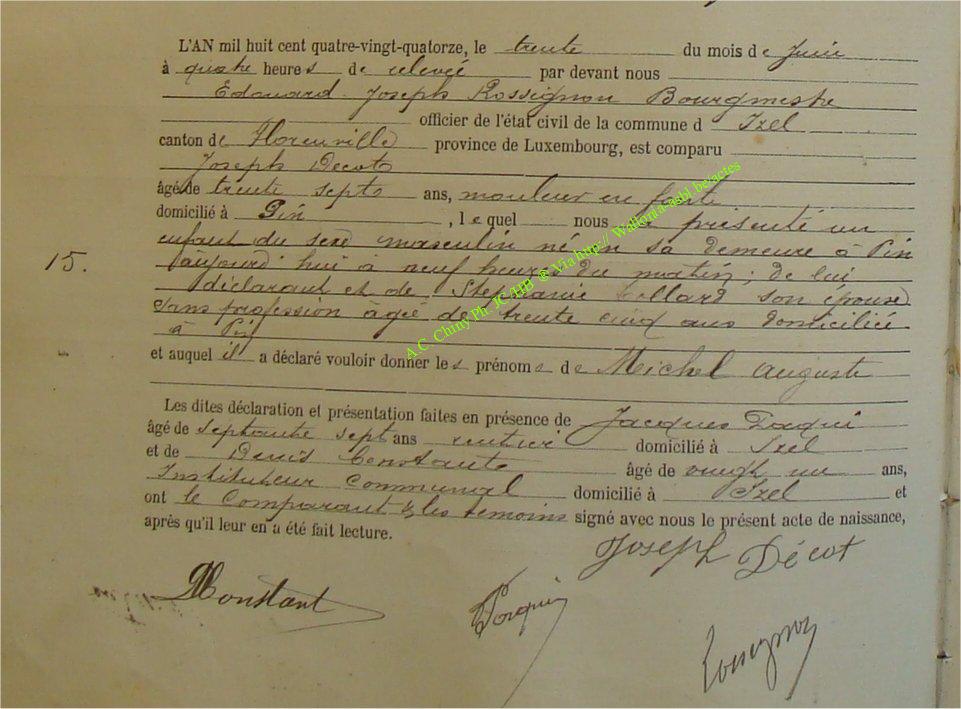 L'AN mil huit cent quatre-vingt-quatorze, le trente du mois de Juin
à quatre heures de relevée par devant nous
Edouard Joseph Rossignon Bourgmestre
officier de l'état civil de la commune d Izel
canton de Florenville province de Luxembourg, est comparu
Joseph Decot
âgé de trente septs ans, mouleur en fonte
domicilié à Pin , lequel nous a présenté un
enfant du sexe masculin né en sa demeure à Pin
aujourd'hui à neuf heures du matin ; de lui
15.
déclarant et de Stéphanie Collard son épouse
sans profession âgée de trente cinq ans domiciliée
à Pin
et auquel il a déclaré vouloir donner les prénoms de Michel Auguste
Les dites déclaration et présentation faites en présence de Jacques
âgé de septante sept ans rentier domicilié à Izel
et de Denis Constant âgé de vingt un ans,
Instituteur communal domicilié à Izel et
ont le comparant & les témoins signé avec nous le présent acte de naissance,
après qu'il leur en a été fait lecture.
Joseph Décot
DConstant
Rossignon
A.C. Chiny Ph. JC/HB @ Via http:// Wallonia-asbl.be/actes